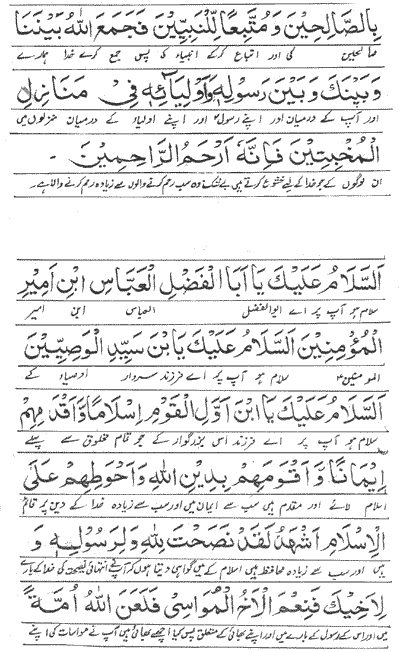 بِالصَّالِحِيْنَ وَمُتَّبِعًا لِّلنَّبِيِّيْنَ فَجَمَعَ اللهُ بَيْنَنَا
صالحین کی اور اتباع کرکے انبیاء کی پس جمع کرے خدا ہمارے
وَبَيْنَكَ وَبَيْنَ رَسُوْلِهٖ وَاَوْلِيَآئِهٖ فِيْ مَنَازِلِ
اور آپ کے درمیان اور اپنے رسول اور اپنے اولیاء کے درمیان منزلوں میں
الْمُخْبِتِيْنَ فَاِنَّهٗ اَرْحَمُ الرَّاحِمِيْنَ ۔
ان لوگوں کے جو خدا کے لیے خشوع کرتے ہیں بے شک وہ سب رحم کرنے والوں سے زیادہ رحم کرنے والا ہے۔
اَلسَّلَامُ عَلَيْكَ يَا اَبَا الْفَضْلِ الْعَبَّاسَ ابْنَ اَمِيْرِ
سلام ہو آپ پر اے ابوالفضل العباس ابن امیر
الْمُؤْمِنِيْنَ اَلسَّلَامُ عَلَيْكَ يَا بْنَ سَيِّدِ الْوَصِيِّيْنَ
المومنین سلام ہو آپ پر اے فرزند سردار اوصیاء کے
اَلسَّلَامُ عَلَيْكَ يَا ابْنَ اَوَّلِ الْقَوْمِ اِسْلَامًا وَّاَقْدَمِهِمْ
سلام ہو آپ پر اے فرزند اس بزرگوار کے جو تمام مخلوق سے پہلے
اِيْمَانًا وَّاَقْوَمِهِمْ بِدِيْنِ اللهِ وَاَحْوَطِهِمْ عَلَى
اسلام لائے اور مقدم ہیں سب سے ایمان میں اور سب سے زیادہ خدا کے دین پر قائم
الْاِسْلَامِ اَشْهَدُ لَقَدْ نَصَحْتَ لِلّٰهِ وَلِرَسُوْلِهٖ وَ
ہیں اور سب سے زیادہ محافظ ہیں اسلام کے میں گواہی دیتا ہوں کہ آپ نے انتہائی نصیحت کی خدا کے بارے
لِاَخِيْكَ فَنِعْمَ الْاَخُ الْمُوَاسِيْ فَلَعَنَ اللهُ اُمَّةً
میں اور اس کے رسول کے بارے میں اور اپنے بھائی کے متعلق پس کیا اچھے بھائی ہیں آپ نے مواسات کی اپنے